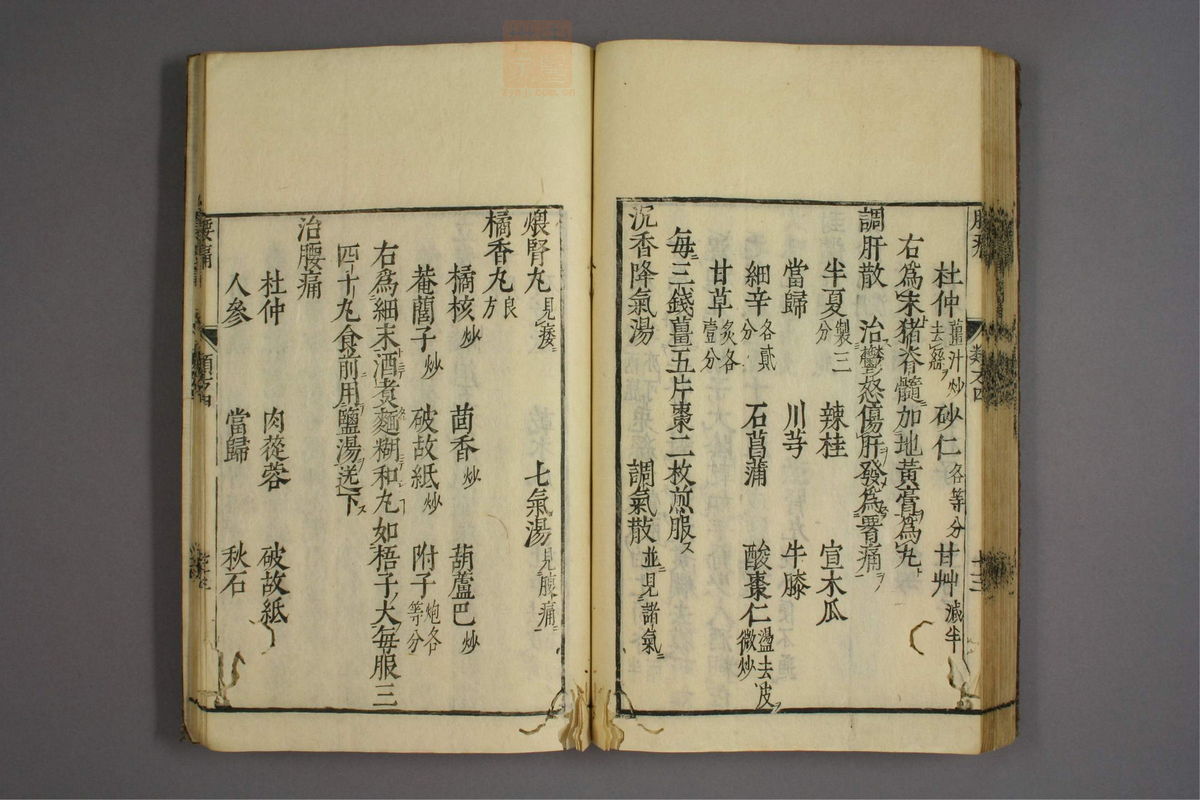 杜仲 薑汁炒去絲 砂仁 各等分 甘艸 減半
右為末猪脊髓加地黃膏為丸
調肝散 治鬱怒傷肝發為腰痛
半夏 製三分 辣桂 宣木瓜
當歸 川芎 牛膝
細辛 各貳分 石菖蒲 酸棗仁 盪去皮微炒
甘草 炙各壹分
每三錢薑五片棗二枚煎服ス
沉香降氣湯 調氣散 並見諸氣ニ
煨腎丸 見痿ニ 七氣湯 見腹痛ニ
橘香丸 良方
橘核 炒 茴香 炒 葫蘆巴 炒
菴䕡子 炒 破故紙 炒 附子 炮各等分
右為細末酒煮麵糊和丸如梧子大每服三
四十丸食前用鹽湯送下ス
治腰痛
杜仲 肉蓯蓉 破故紙
人參 當歸 秋石
腰痛 類方四